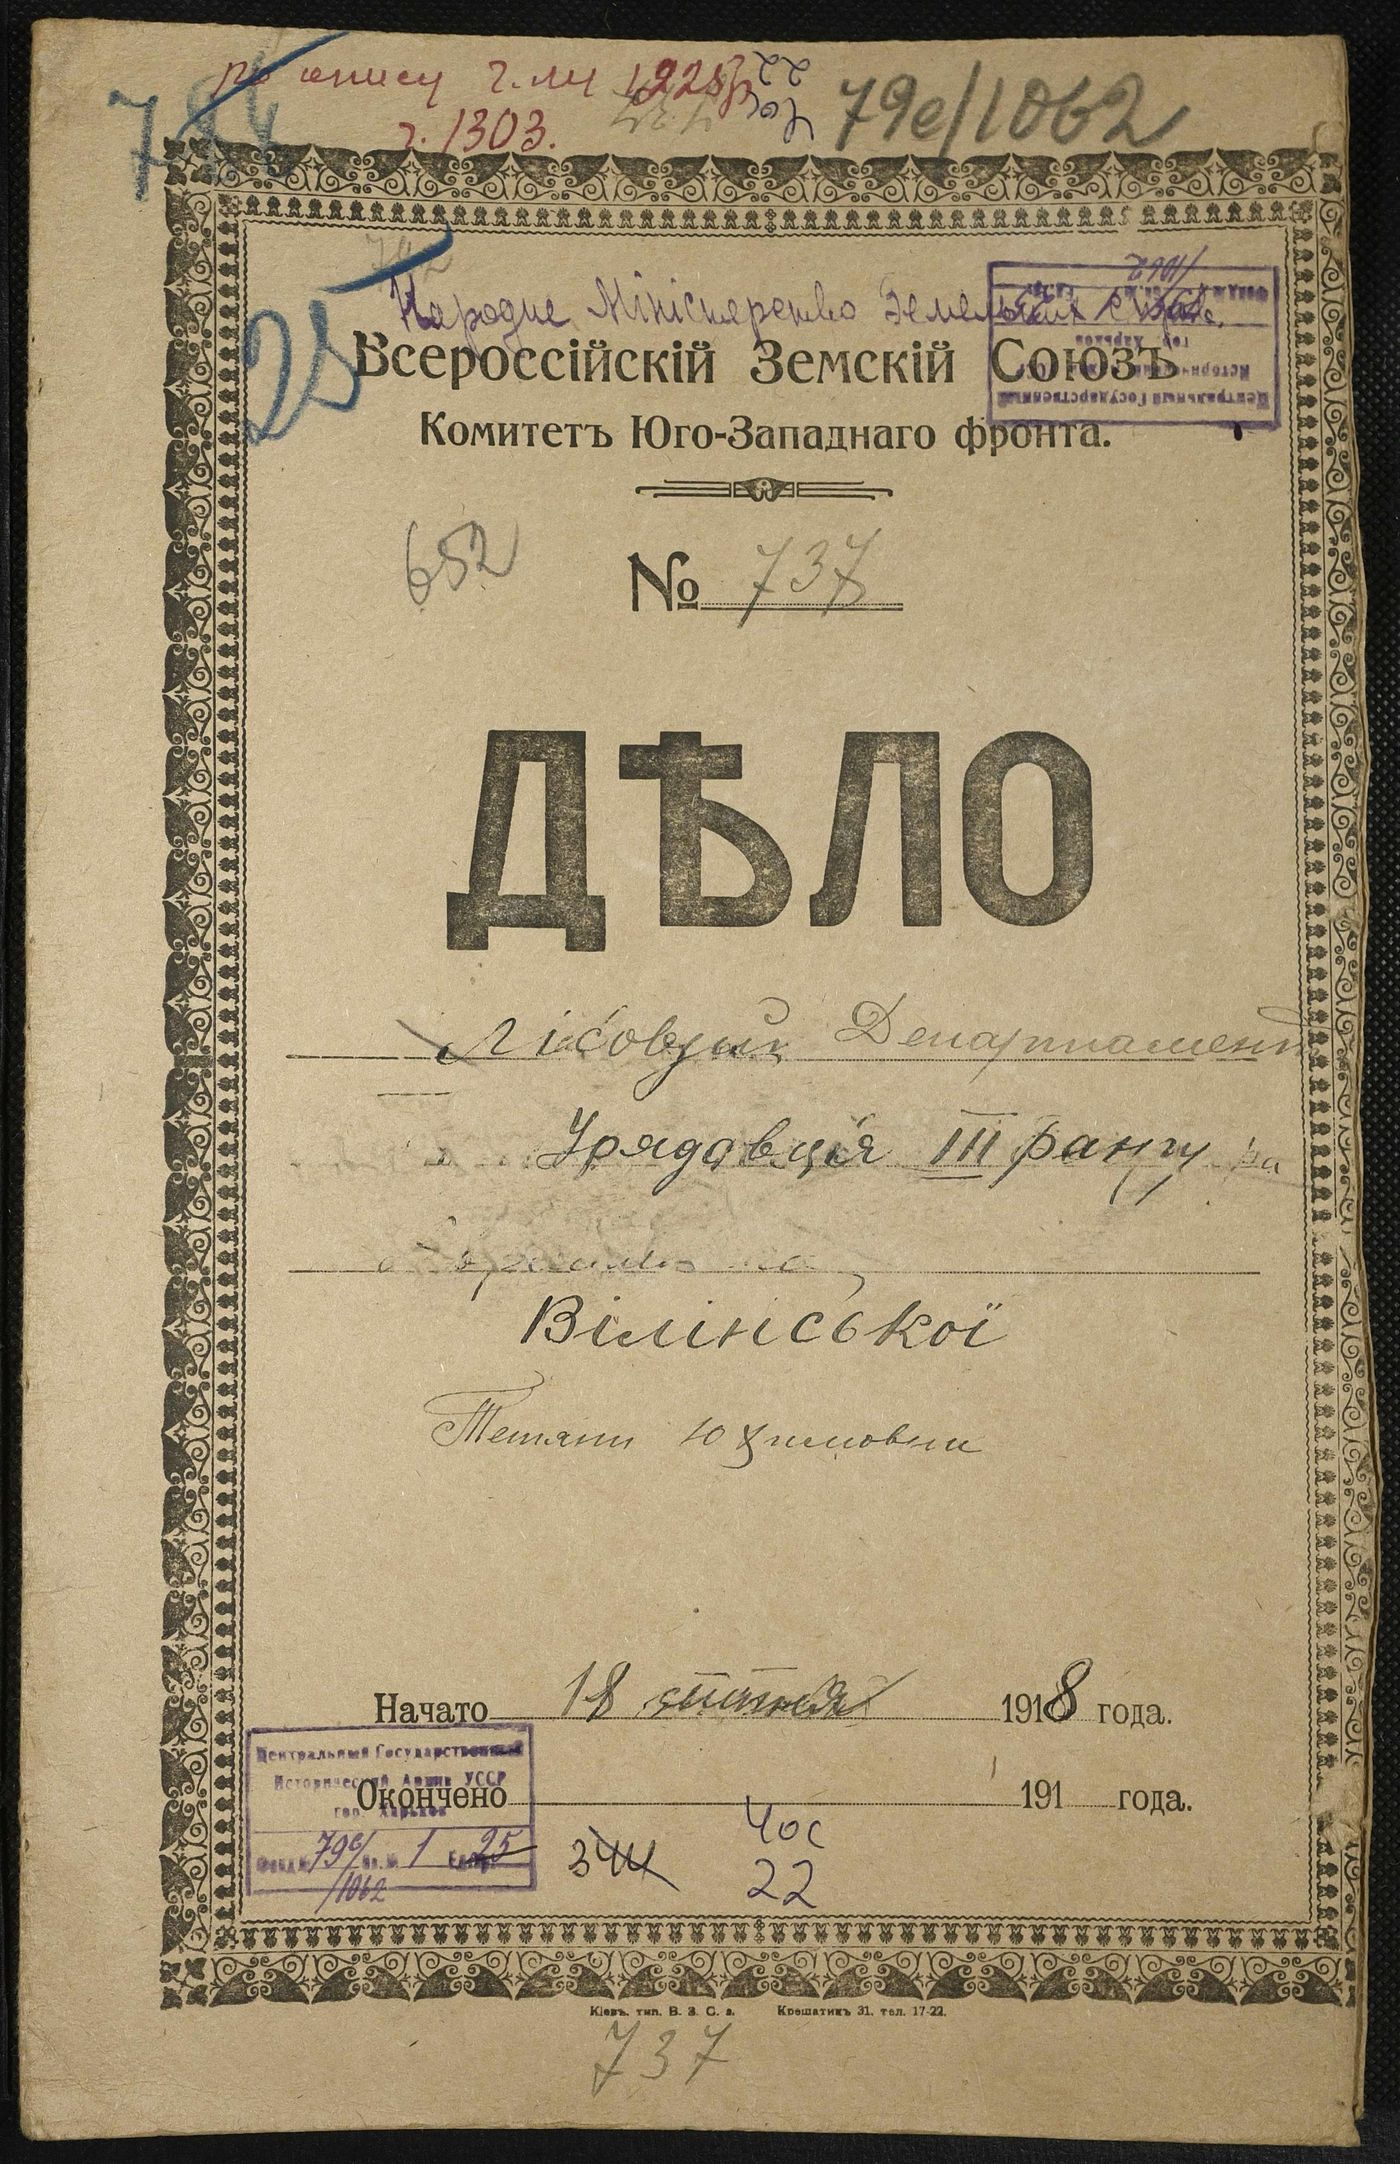 по опису г. лл 1928 р
ч. 1303.
79е/1062
Народне Міністерство Земельних справ
Всероссійскій Земскій Союзъ
Комитетъ Юго-Западнаго фронта.
25
652
№ 737
ДѢЛО
Лісовий Департамент
Урядовця III рангу
Вілінської
Тетяни Юхимовни
Начато 18 1918 года.
Окончено 191 года.
Центральный Государственный
Исторический Архив УССР
гор. Харьков
Фонд № 79е/1062 оп. № 1 Ед. хр. 25
344
Чос
22
Кіевъ, тип. В. З. С. а. Крещатикъ 31. тел. 17-22.
737